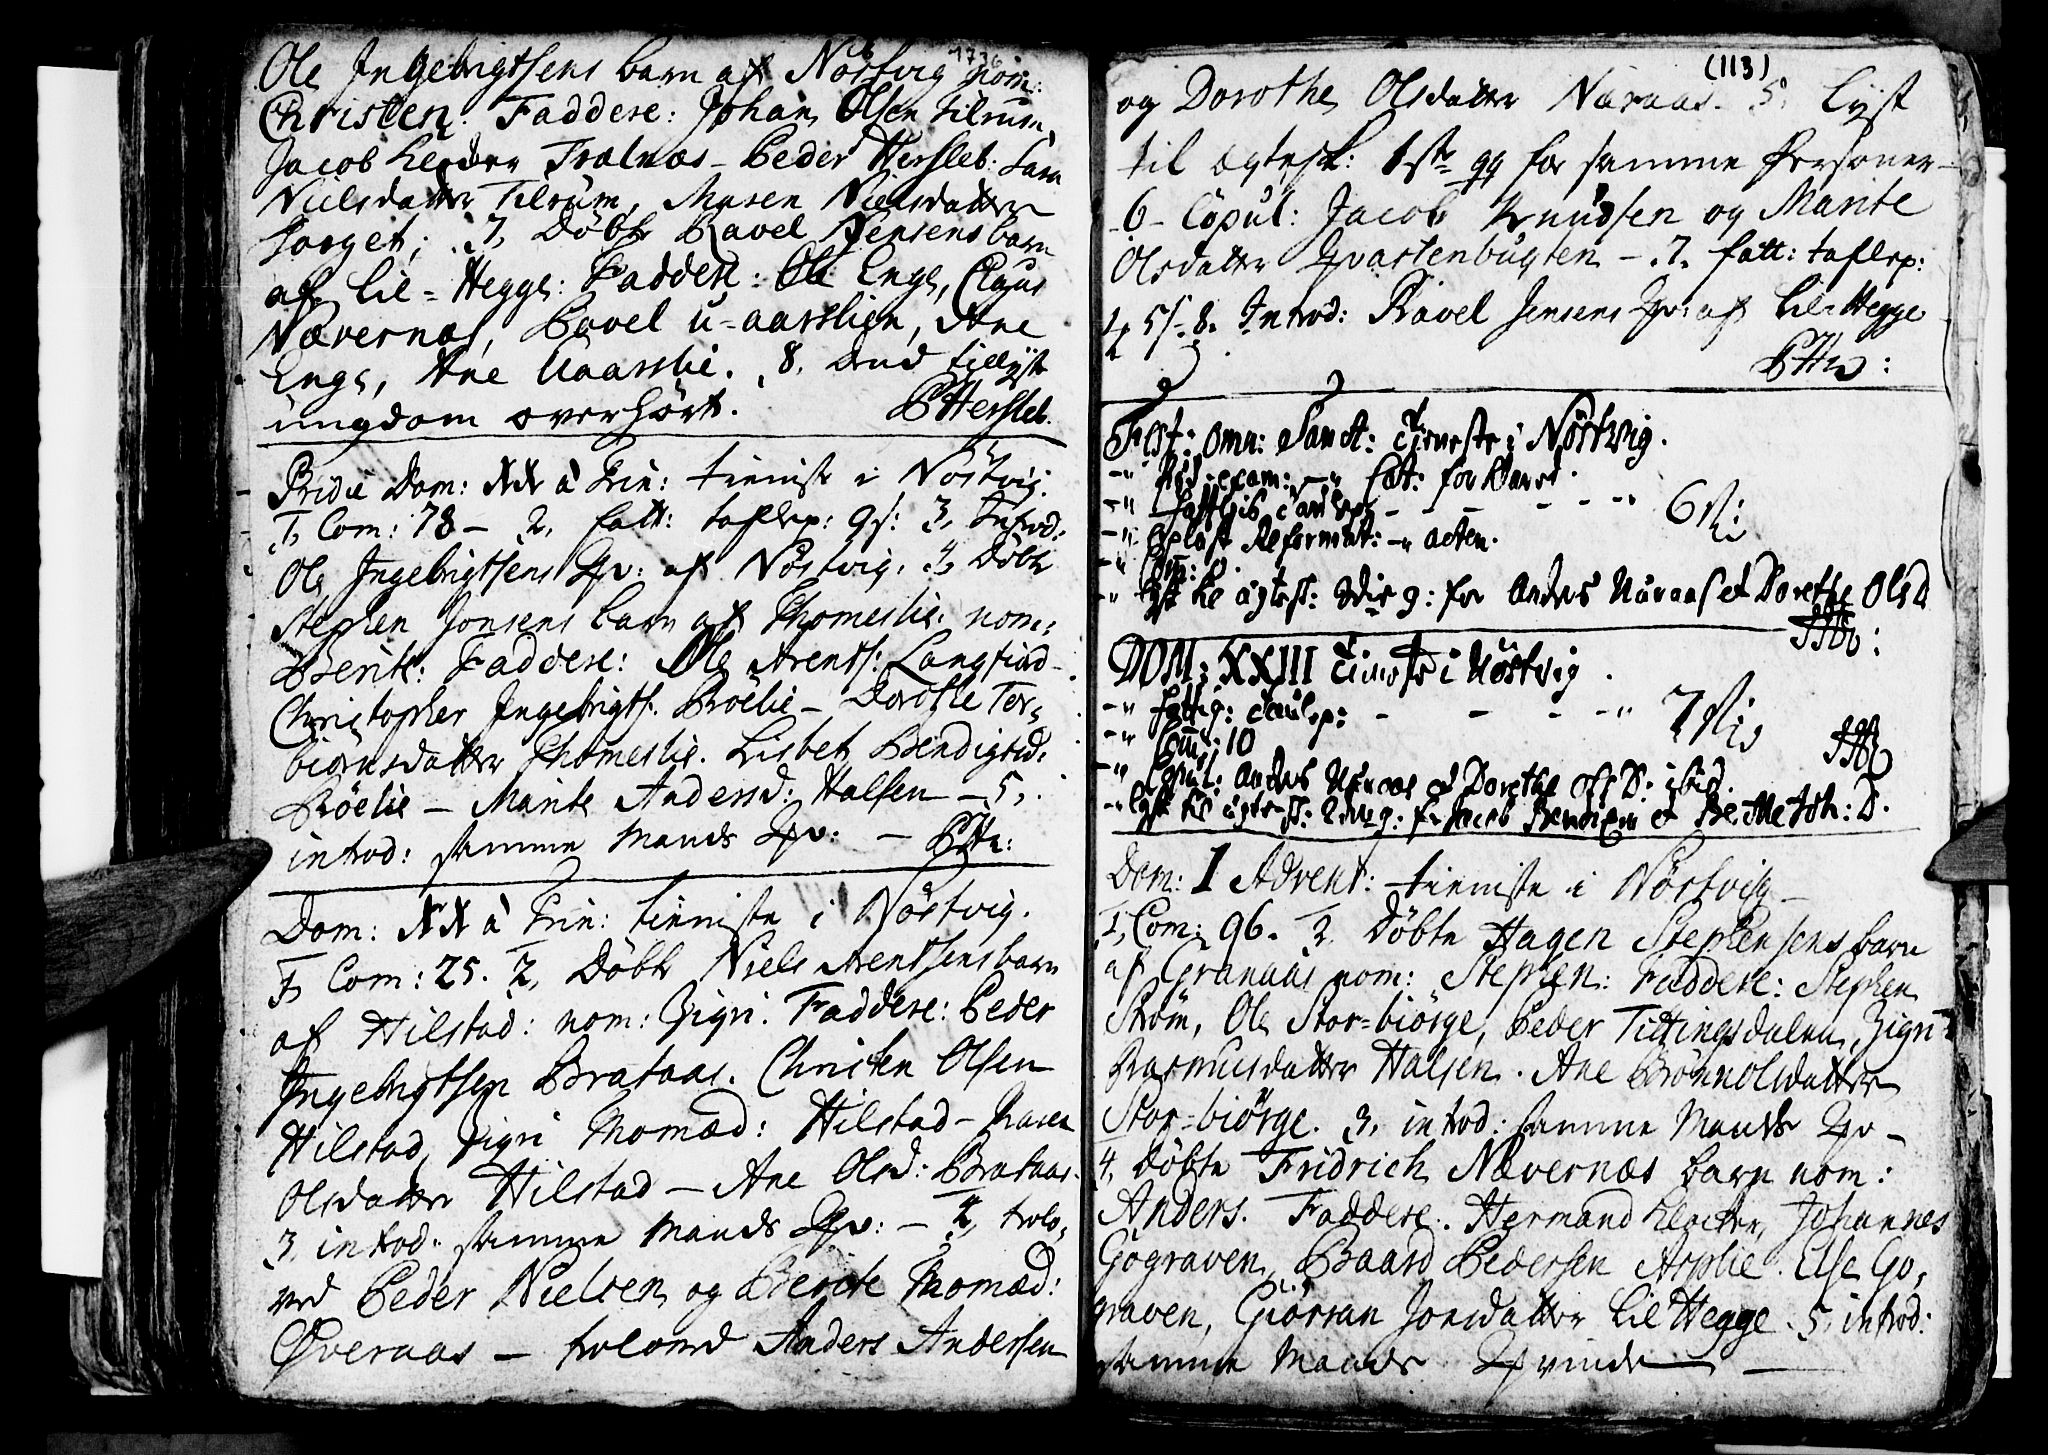 1736
Ole Ingebrigtsens barn af Nöstvig nom:
Christen. Faddere: Johan Olsen Tilrum,
Jacob Leeder Trælnæs - Peder Hersleb: Sara
Nielsdatter Tilrüm, Maren Nielsdatter
Torget; 7, Döbte Pavel Jensens barn
af Lil-Hegge: Faddere: Ole Enge, Claus
Nævernæs, Pavel u-aarslien, Ane
Enge, Ane Uaarslie. 8, Dend tillyste
ungdom overhört. PHersleb.
Pridie Dom: XX à Trin: tieniste i Nöstvig.
1, Com: 78 - 2, fatt: taflep: 9 s: 3, Introd:
Ole Ingebrigtsens Qv: af Nöstvig. 4, Döbte
Stephen Jonsens barn af Thomeslie. nom:
Berite: Faddere: Ole Arents: Langtind -
Christopher Ingebrigts: Bröelie - Dorothe Tor-
biörnsdatter Thomeslie. Lisbet Bendigtsd:
Bröelie - Marite Andersd: Halsen - 5,
introd: samme Mands Qv: - PHr:
Dom: XX à Trin: tieniste i Nöstvig.
1, Com: 25. 2, Döbte Niels Arentsens barn
af Hilstad: nom: Zigri. Faddere: Peder
Ingebrigtsen Brataas. Christen Olsen
Hilstad, Zigri Thomæd: Hilstad - Maren
Olsdatter Hilstad - Ane Olsd: Brataas.
3, introd: samme Mands Qv: - 4, trolo,
ved Peder Nielsen og Berete Thomæd:
Øveraas - troloved Anders Andersen
(113)
og Dorothe Olsdatter Naraas. 5, lyst
til ægtesk: 1ste gg for samme Personer -
6 - Copul: Jacob Knudsen og Marite
Olsdatter Qvastenbugten - 7. fatt: taflep:
4 s - 8. Introd: Pavel Jensens Qv: af Lil-Hegge
PHr:
Fest: Omn: Sanct: Tieneste i Nöstvig.
-" fattigis taulep: - - - - - " 6 sk:
-" Oplæst Reformat: -" acten.
-" Com: 0.
-" lyst til ægtesk: 2die g: for Anders Naraas et Dorethe Ols D
DOM: XXIII Tieneste i Nöstvig.
-" fattig: taulep: - - - - " 7 sk
-" Com: 10
-" Copul: Anders Naraas et Dorethe Ols D: ibid.
-" lyst til ægtesk: g: for Jacob et Berethe Joh: D.
Dom: 1 Advent: tieniste i Nöstvig -
1, Com: 96. 2, Döbte Hagen Stephensens barn
af Granaas nom: Stephen: Faddere: Stephen
Ström, Ole Stor-biörge, Peder Tittingsdalen, Zigri
Rasmusdatter Halsen. Ane Brönnolsdatter
Stor-biörge. 3, introd: samme Mands Qv -
4, Döbte Fridrich Nævernæs barn nom:
Anders. Faddere: Hermand Leeder, Johannes
Gögraven, Baard Pedersen Arslie. Else Gö,
graven, Giörran Jonsdatter Lil Hegge. 5, introd:
samme Mands Qvinde -